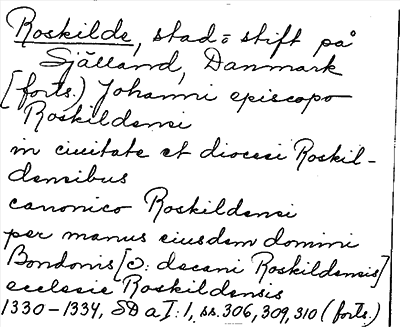 Roskilde, stad o stift på
Själland, Danmark
[forts.) Johanni episcopo
Roskildensi
in ciuitate et diocesi Roskil-
densibus
canonico Roskildensi
per manus eiusdem domini
Bondonis [ɔ: decani Roskildensis]
ecclesie Roskildensis
1330-1334, SD a I:1, ss. 306, 309, 310 (forts.)